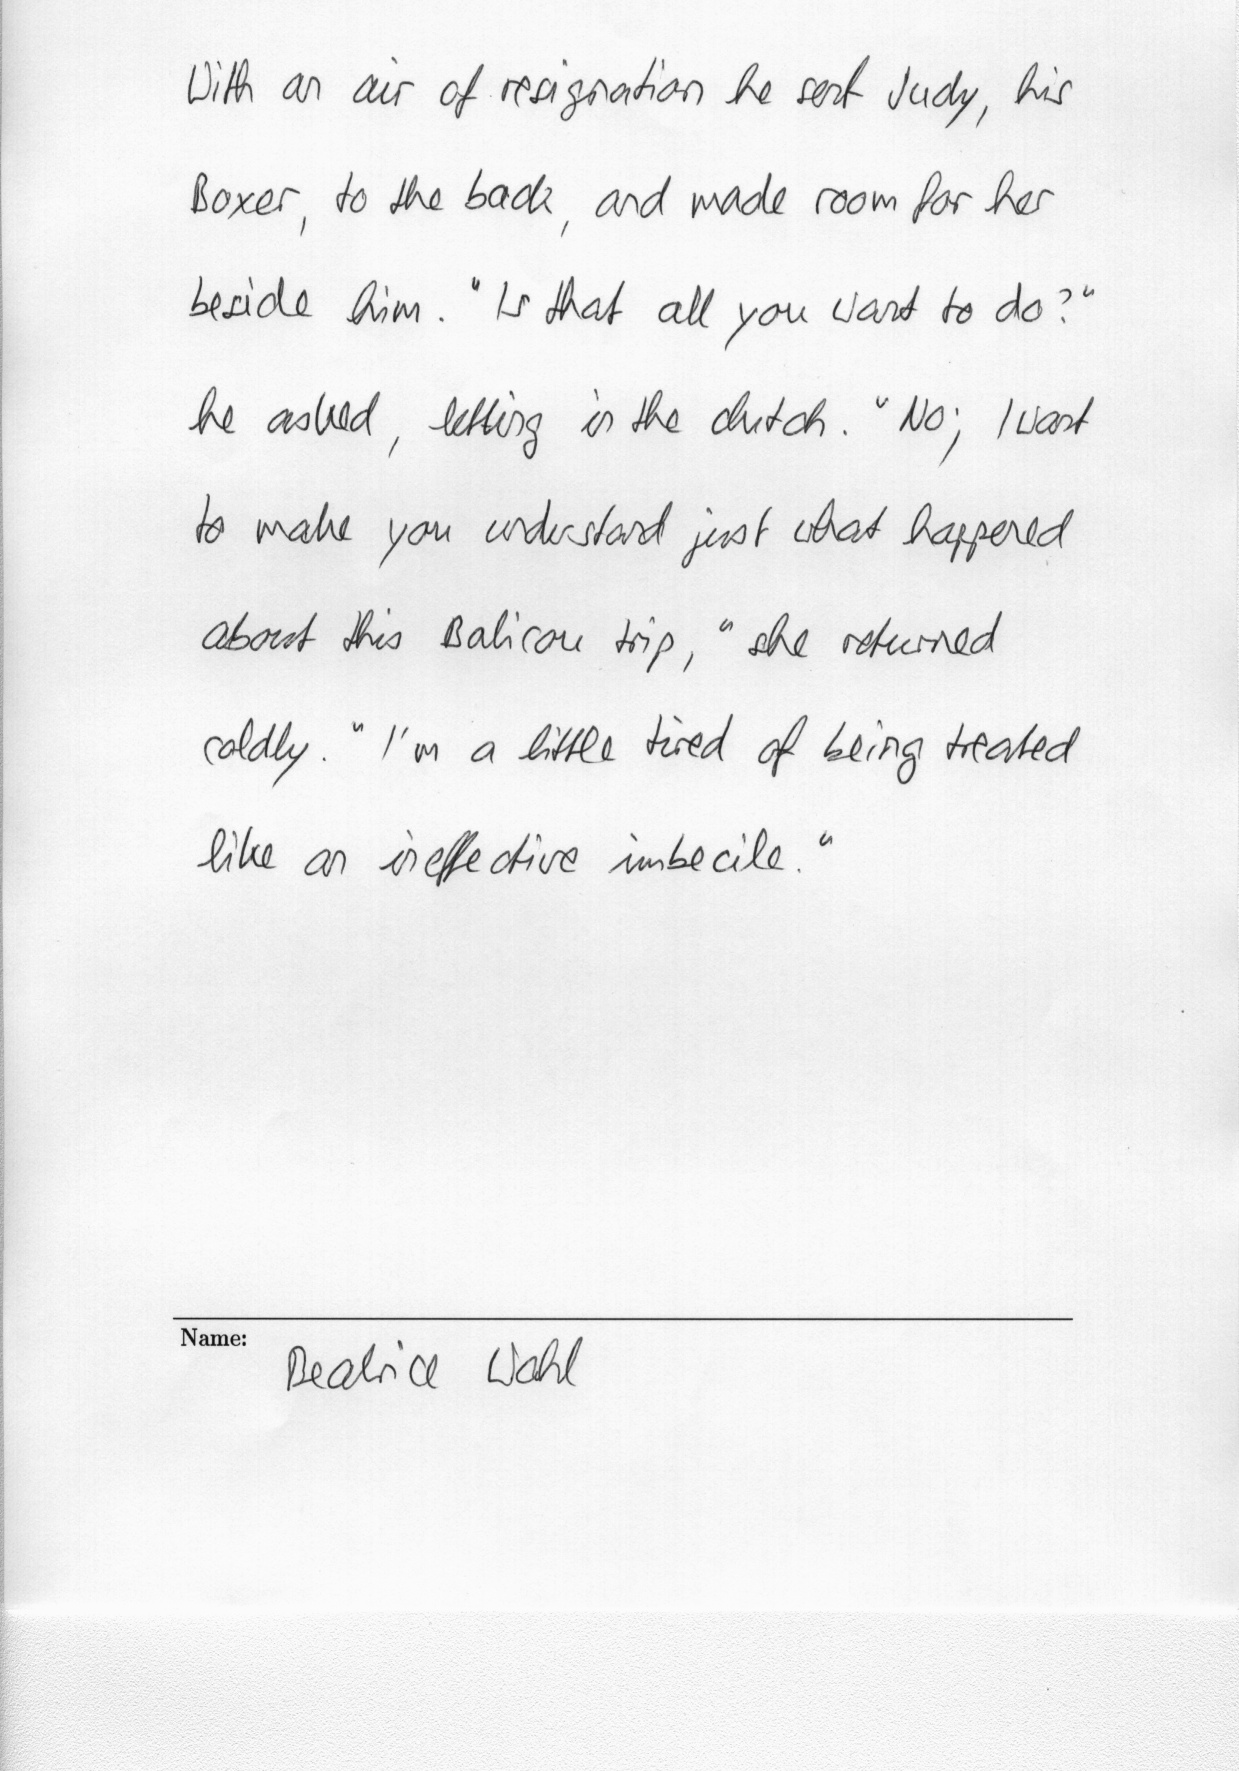 With an air of resignation he sent Judy, his
Boxer, to the back, and made room for her
beside him. "Is that all you want to do?"
he asked, letting in the clutch. "No; I want
to make you understand just what happened
about this Balicou trip," she returned
coldly. "I'm a little tired of being treated
like an ineffective imbecile."
Name:
Beatrice Wahl